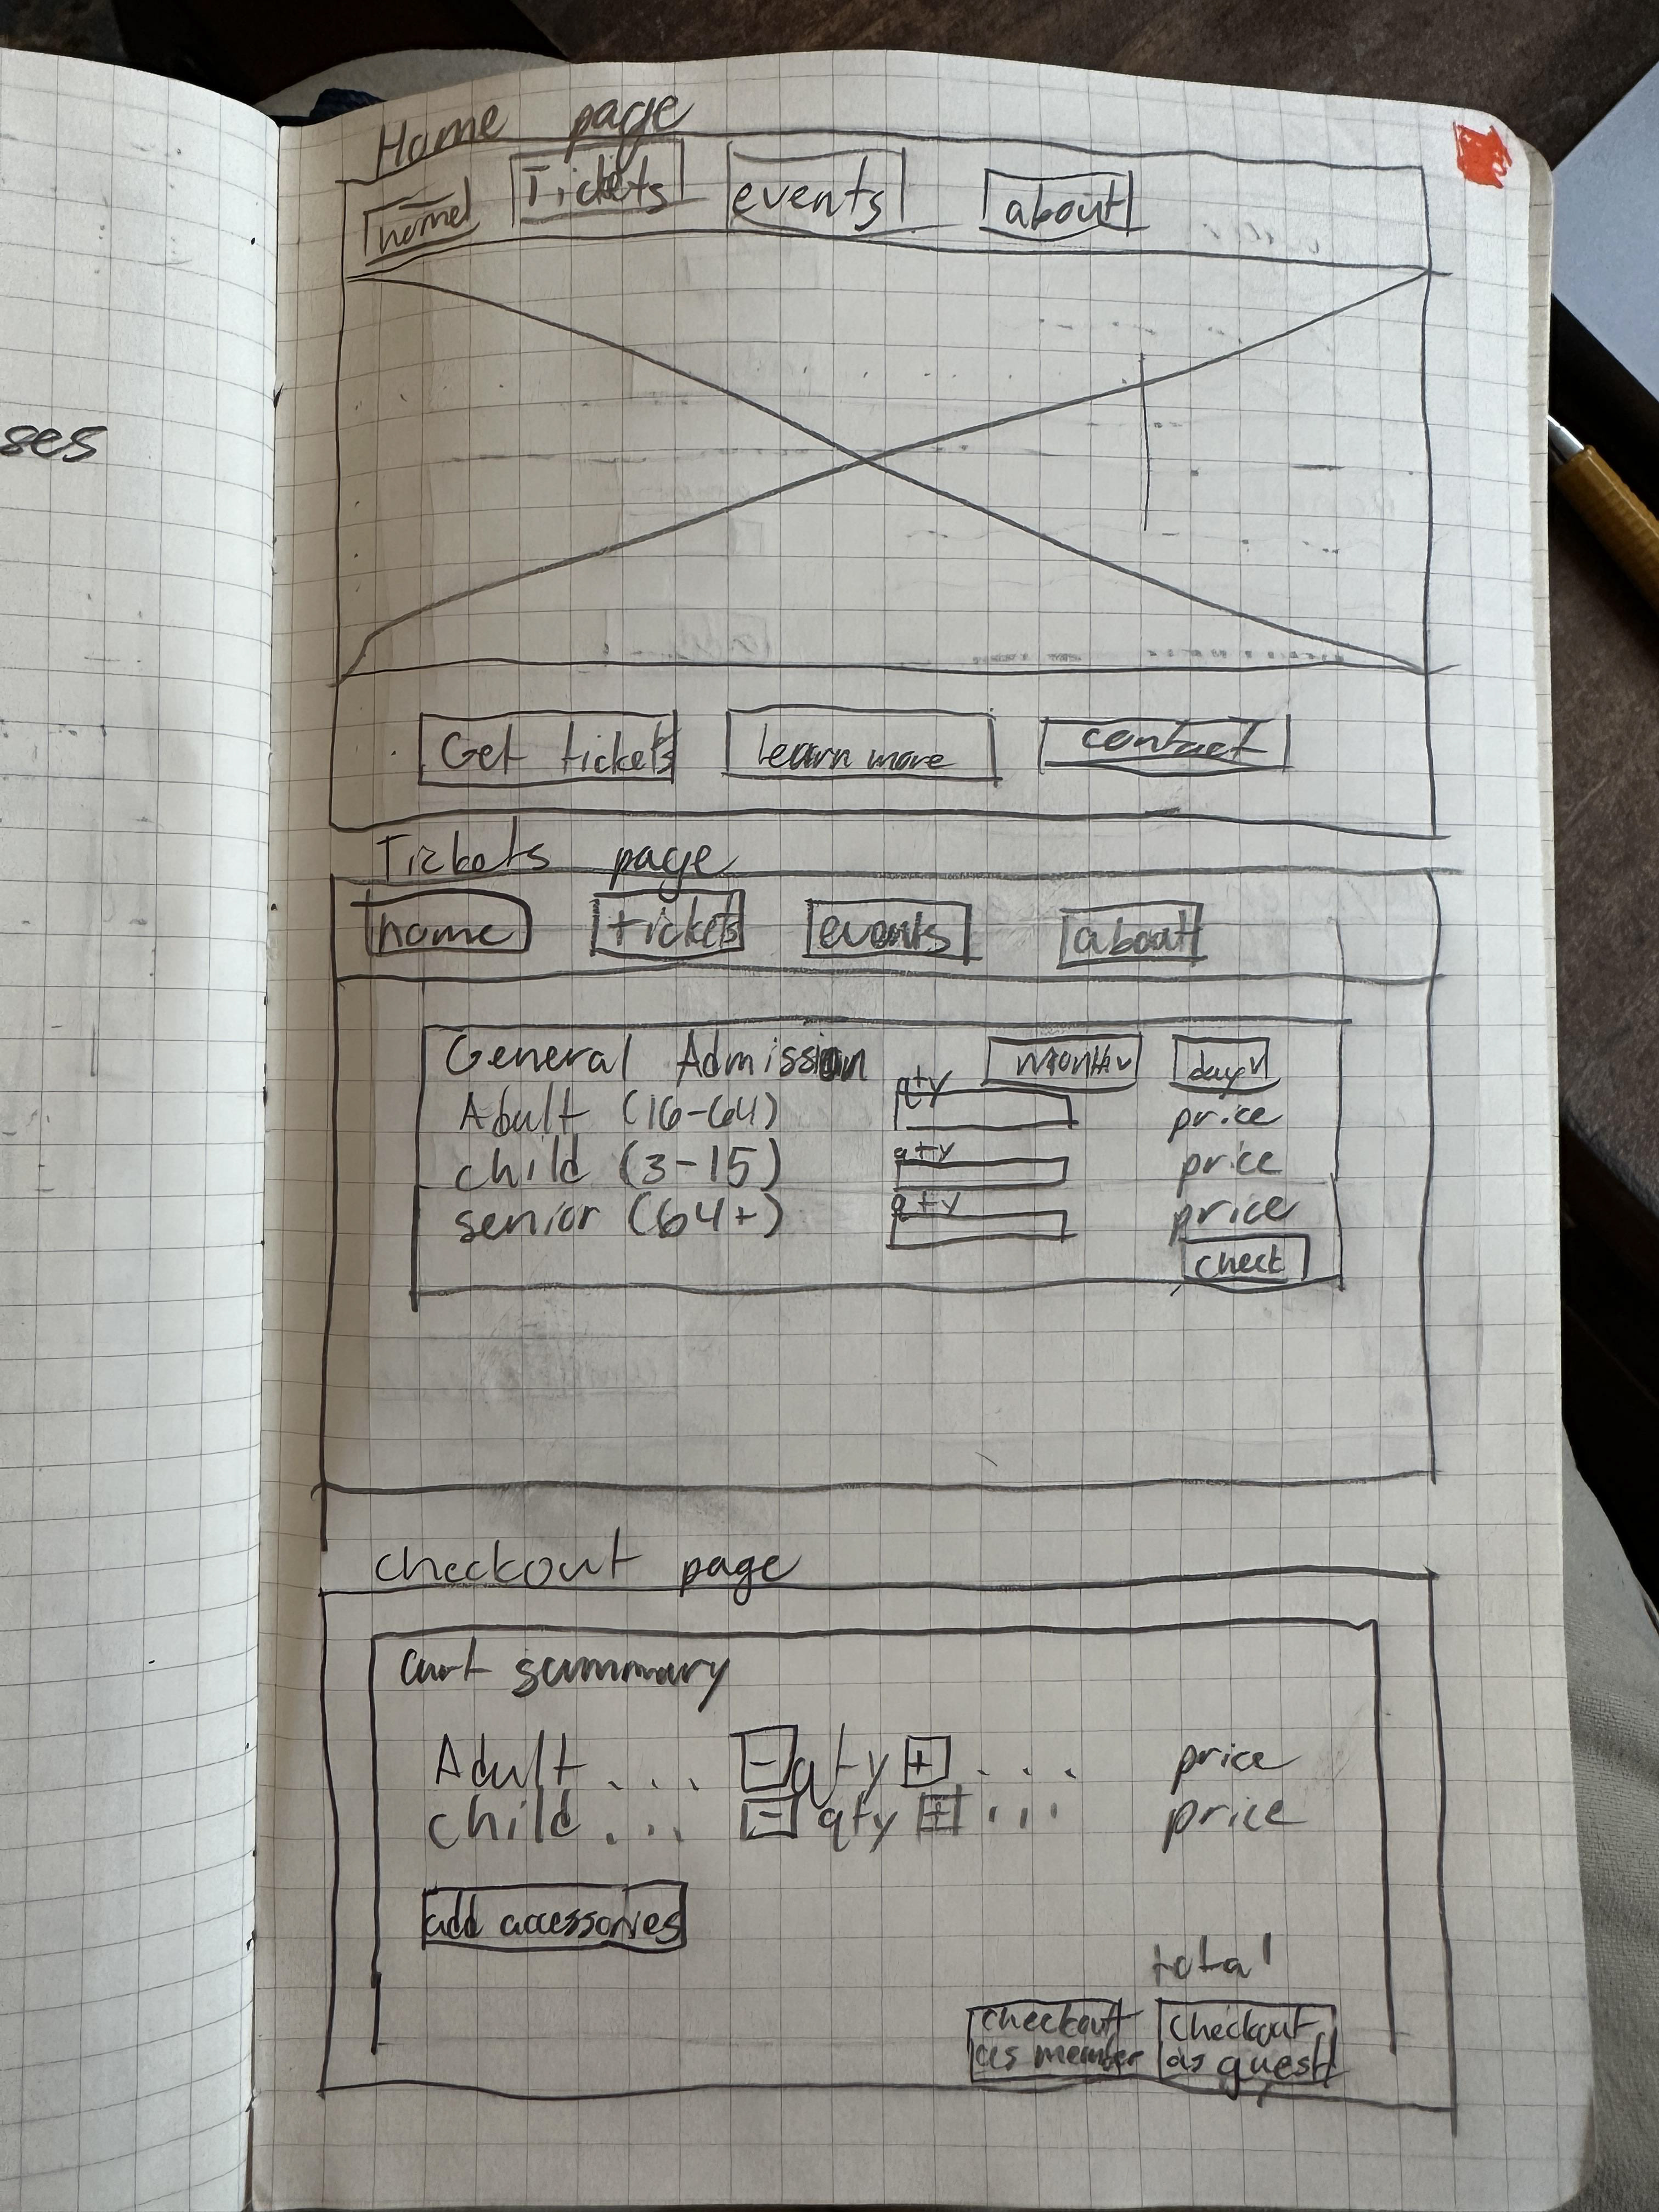 ses
Home page
home Tickets events about
Get tickets learn more contact
Tickets page
home tickets events about
General Admission month v day v
Adult (16-64) qty price
child (3-15) qty price
senior (64+) qty price
check
checkout page
cart summary
Adult ... - qty + ... price
child ... - qty + ... price
add accessories
total
checkout as member checkout as guest